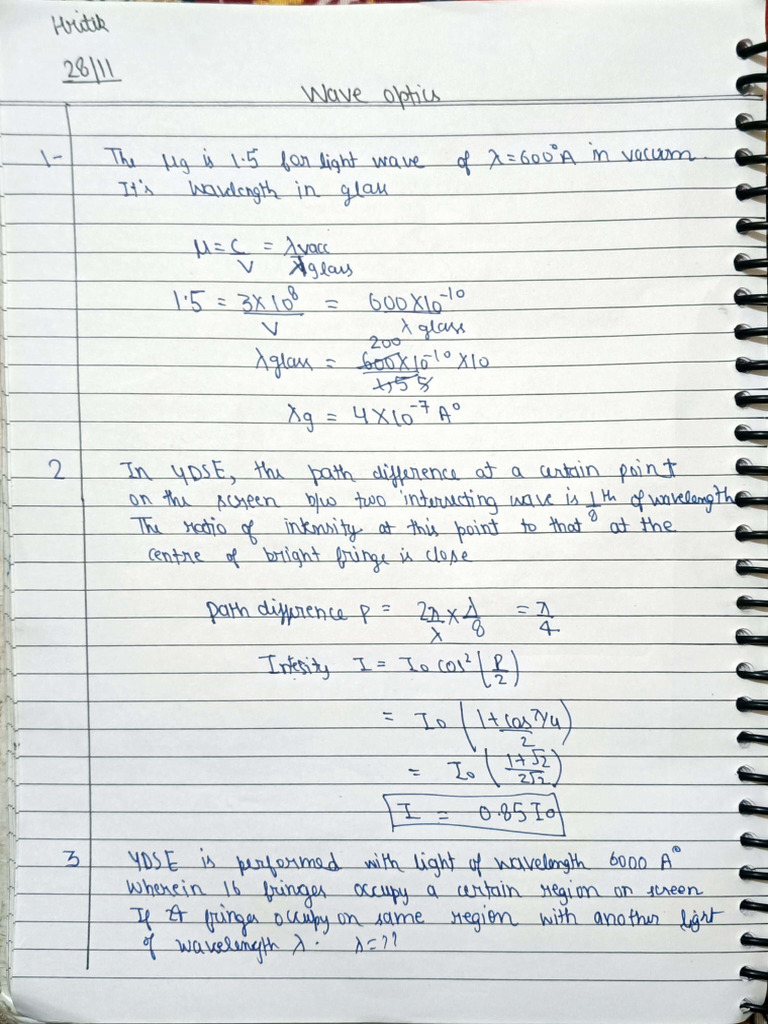 Hritik
28/11
Wave optics
1- The μg is 1.5 for light wave of λ=600°A in vacum.
It's wavelength in glass
μ = C/V = λvacc/λglass
1.5 = 3×10⁸/V = 600×10⁻¹⁰/λglass
200
λglass = 600×10⁻¹⁰×10/15 5
λg = 4×10⁻⁷ A°
2 In YDSE, the path difference at a certain point
on the screen b/w two intersecting wave is 1/8 th of wavelength
The ratio of intensity at this point to that at the
centre of bright fringe is close
path difference P = 2π/λ × λ/8 = π/4
Intesity I = I₀ cos² (P/2)
= I₀ (1+cos π/4 / 2)
= I₀ (1+√2 / 2√2)
I = 0.85 I₀
3 YDSE is performed with light of wavelength 6000 A°
wherein 16 fringes occupy a certain region on screen
If fringes occupy on same region with another light
of wavelength λ. λ=??